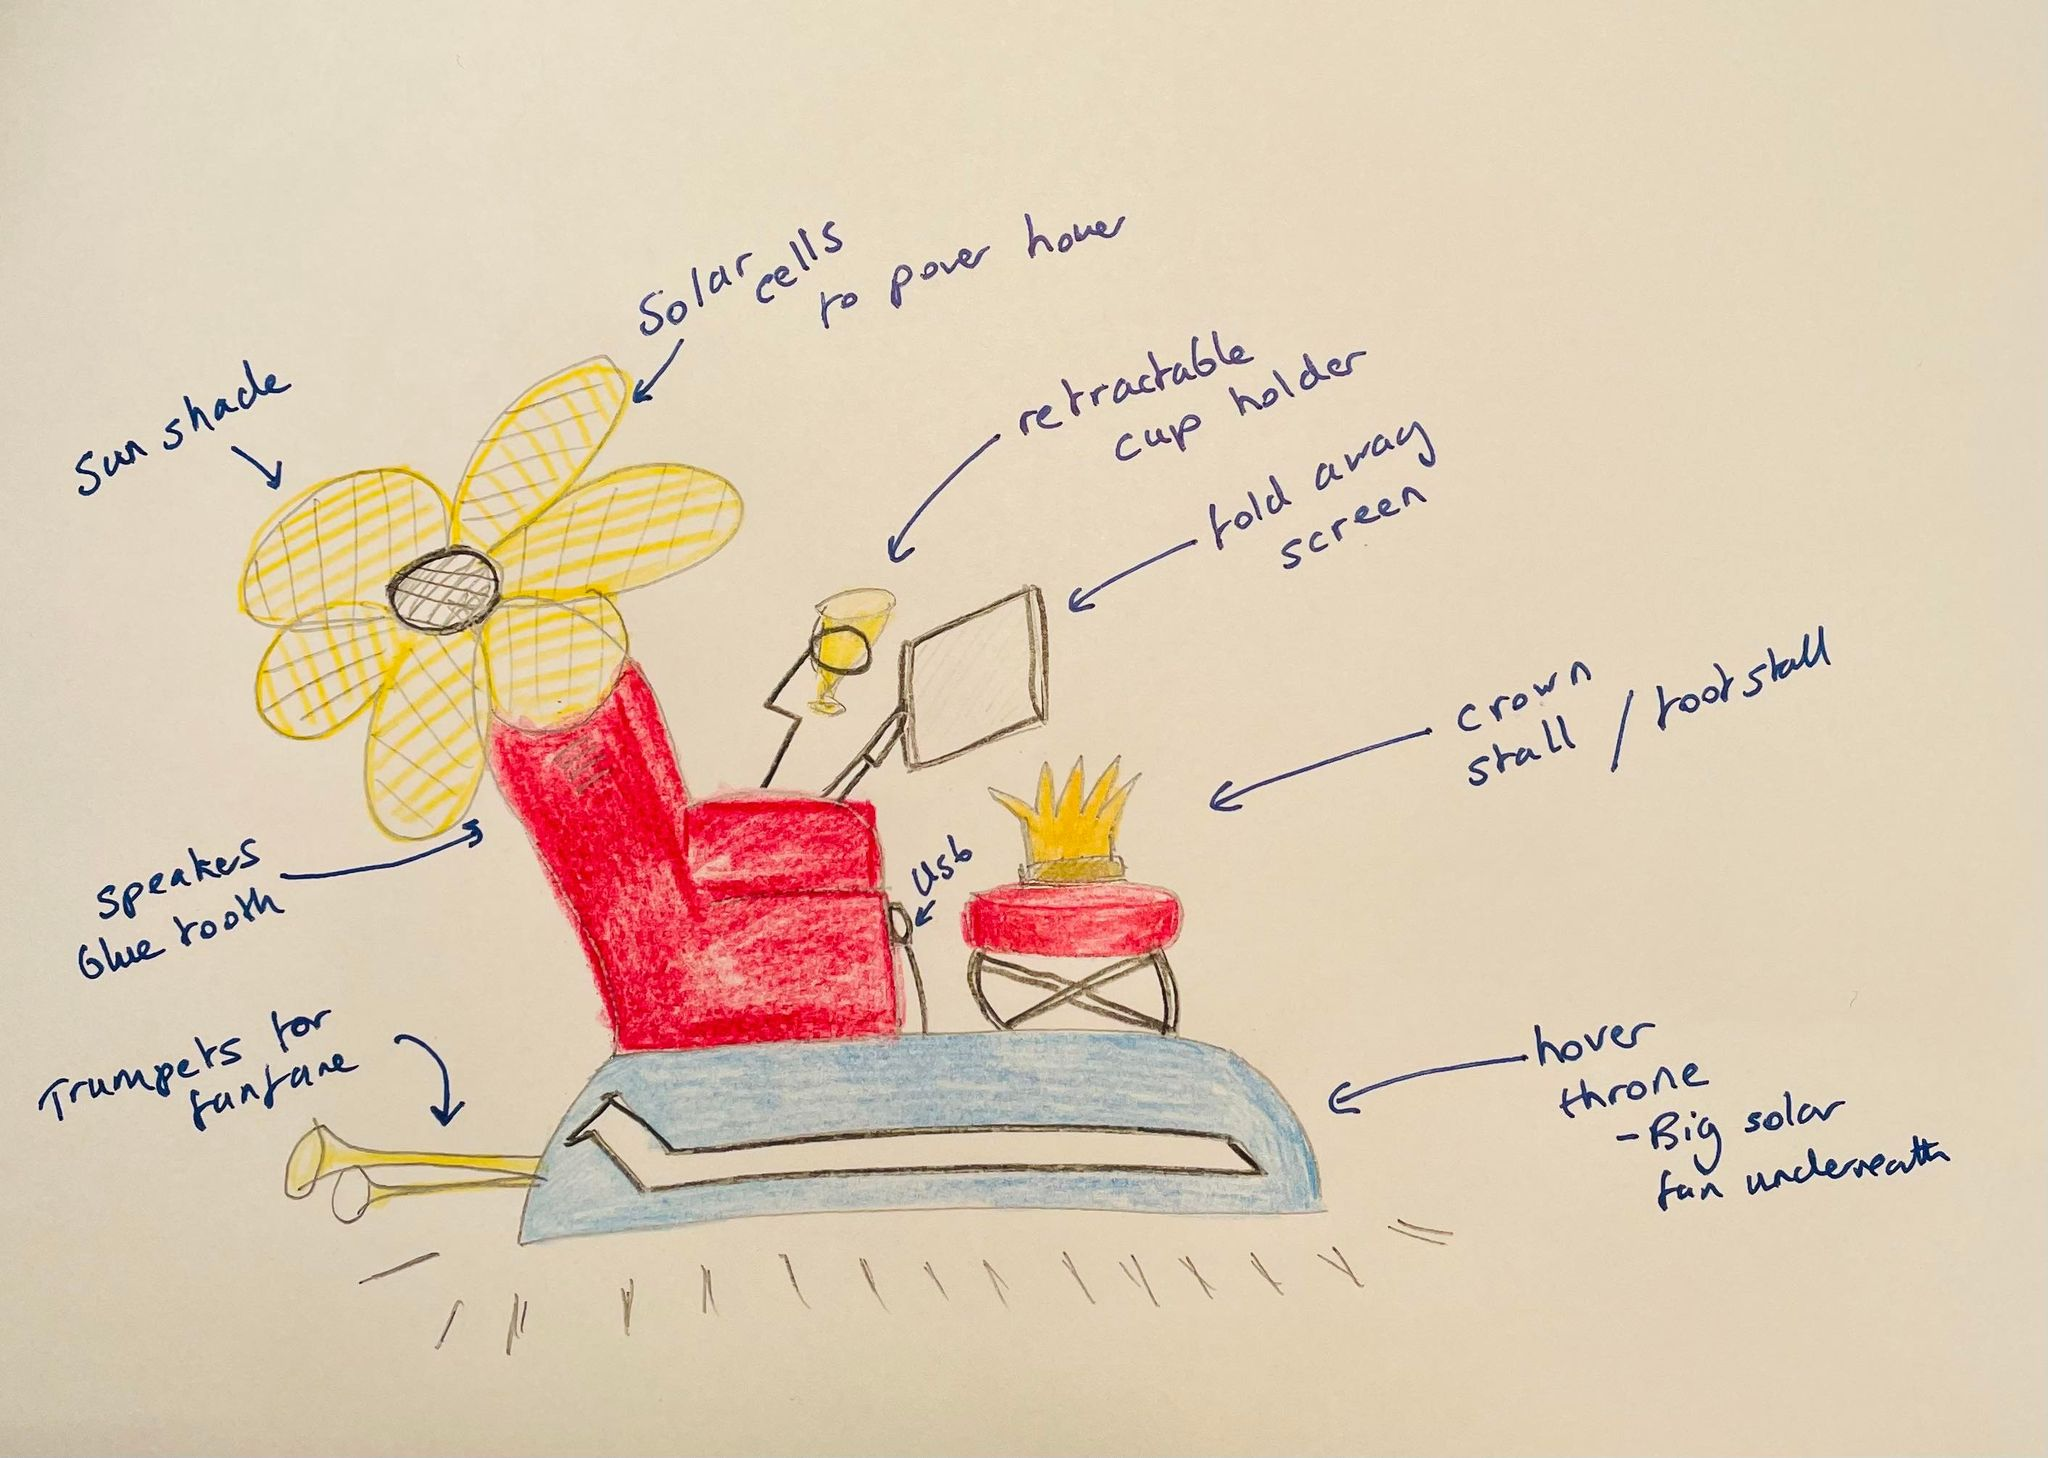 Solar cells
to power hover
Sun shade
retractable
cup holder
fold away
screen
crown
stall / footstall
usb
speakers
bluetooth
Trumpets for
fanfare
hover
throne
- Big solar
fan underneath